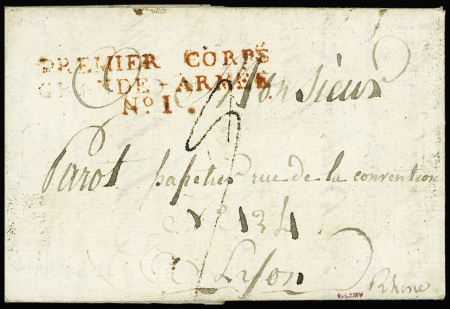 PREMIER CORPS
GRANDE-ARMÉE
No. 1.
Monsieur
Parot papetier rue de la convention
No 134
Lyon
Rhone